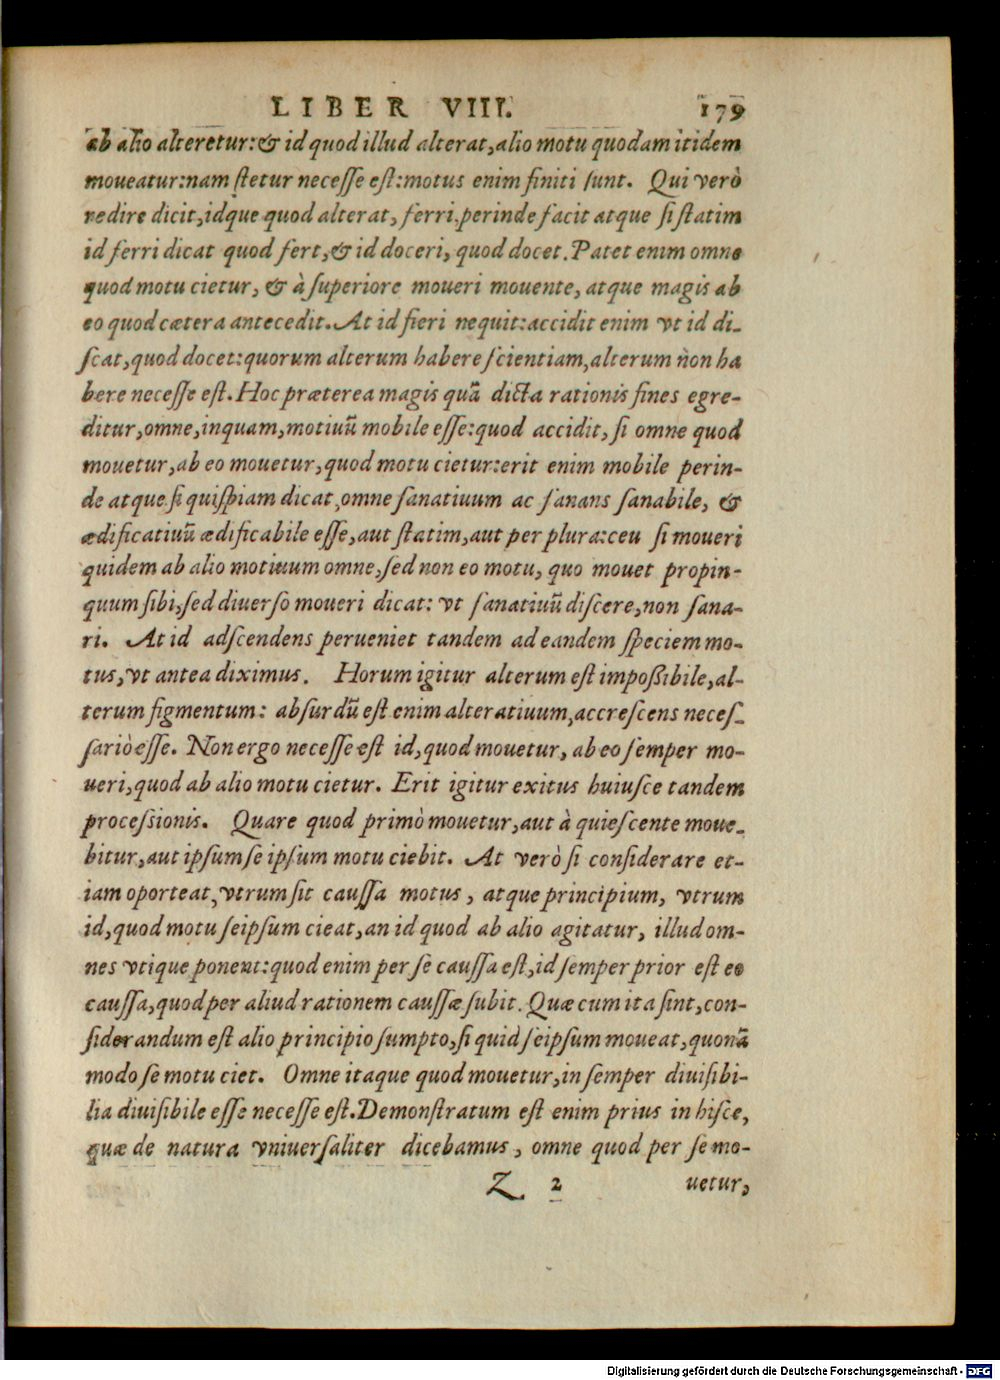 LIBER VIII. 179
ab alio alteretur:& id quod illud alterat, alio motu quodam itidem
moueatur:nam stetur necesse est:motus enim finiti sunt. Qui verò
redire dicit, idque quod alterat, ferri, perinde facit atque si statim
id ferri dicat quod fert, & id doceri, quod docet. Patet enim omne
quod motu cietur, & à superiore moueri mouente, atque magis ab
eo quod cætera antecedit. At id fieri nequit:accidit enim vt id di-
scat, quod docet:quorum alterum habere scientiam, alterum non ha
bere necesse est. Hoc præterea magis quã dicta rationis fines egre-
ditur, omne, inquam, motiuũ mobile esse:quod accidit, si omne quod
mouetur, ab eo mouetur, quod motu cietur:erit enim mobile perin-
de atque si quispiam dicat, omne sanatiuum ac sanans sanabile, &
ædificatiuũ ædificabile esse, aut statim, aut per plura:ceu si moueri
quidem ab alio motiuum omne, sed non eo motu, quo mouet propin-
quum sibi, sed diuerso moueri dicat: vt sanatiuũ discere, non sana-
ri. At id adscendens perueniet tandem ad eandem speciem mo-
tus, vt antea diximus. Horum igitur alterum est impoßibile, al-
terum figmentum: absurdũ est enim alteratiuum, accrescens neces-
sariò esse. Non ergo necesse est id, quod mouetur, ab eo semper mo-
ueri, quod ab alio motu cietur. Erit igitur exitus huiusce tandem
processionis. Quare quod primò mouetur, aut à quiescente moue-
bitur, aut ipsum se ipsum motu ciebit. At verò si considerare et-
iam oporteat, vtrum sit caussa motus, atque principium, vtrum
id, quod motu seipsum cieat, an id quod ab alio agitatur, illud om-
nes vtique ponent:quod enim per se caussa est, id semper prior est eo
caussa, quod per aliud rationem caussæ subit. Quæ cum ita sint, con-
siderandum est alio principio sumpto, si quid seipsum moueat, quonã
modo se motu ciet. Omne itaque quod mouetur, in semper diuisibi-
lia diuisibile esse necesse est. Demonstratum est enim prius in hisce,
quæ de natura vniuersaliter dicebamus, omne quod per se mo-
Z 2 uetur,
Digitalisierung gefördert durch die Deutsche Forschungsgemeinschaft - DFG